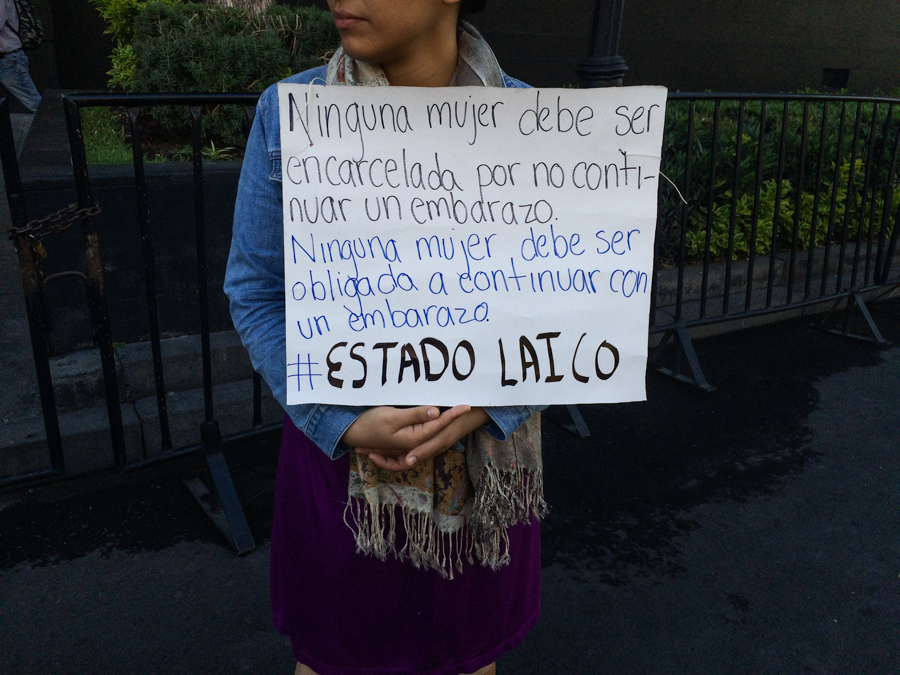 Ninguna mujer debe ser
encarcelada por no conti-
nuar un embarazo.
Ninguna mujer debe ser
obligada a continuar con
un embarazo.
#ESTADO LAICO